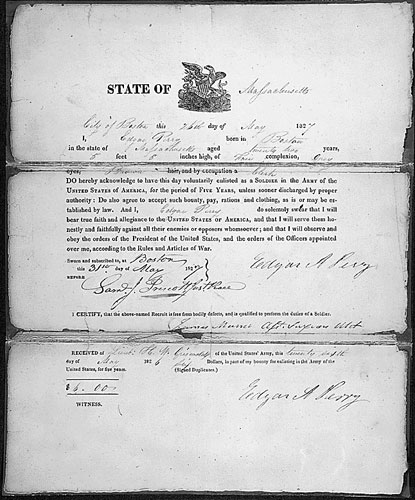 STATE OF Massachusetts
City of Boston this 26th day of May 1827
I, Edgar Perry born in Boston
in the state of Massachusetts aged twenty two years,
5 feet 8 inches high, of Fair complexion, Grey
eyes, Brown hair, and by occupation a Clerk
DO hereby acknowledge to have this day voluntarily enlisted as a SOLDIER IN THE ARMY OF THE
UNITED STATES OF AMERICA, for the period of FIVE YEARS, unless sooner discharged by proper
authority: Do also agree to accept such bounty, pay, rations and clothing, as is or may be es-
tablished by law. And I, Edgar Perry do solemnly swear that I will
bear true faith and allegiance to the UNITED STATES OF AMERICA, and that I will serve them ho-
nestly and faithfully against all their enemies or opposers whomsoever; and that I will observe and
obey the orders of the President of the United States, and the orders of the Officers appointed
over me, according to the Rules and Articles of War.
Sworn and subscribed to, at Boston
this 31st day of May 1827
BEFORE
Edgar A Perry
I CERTIFY, that the above-named Recruit is free from bodily defects, and is qualified to perform the duties of a Soldier.
James
RECEIVED of of the United States' Army, this twenty sixth
day of May 182 Six Dollars, in part of my bounty for enlisting in the Army of the
United States, for five years. (Signed Duplicates.)
$6.00
Edgar A Perry
WITNESS.